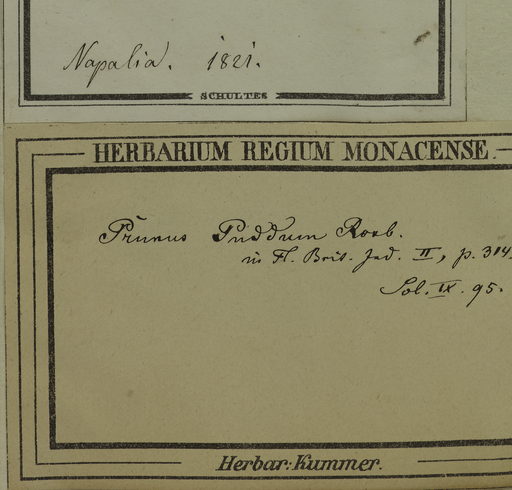 Napalia. 1821.
SCHULTES
HERBARIUM REGIUM MONACENSE.
Prunus Puddum Roxb.
in Fl. Brit. Ind. II, p. 314.
Sol. IX. 95.
Herbar: Kummer.